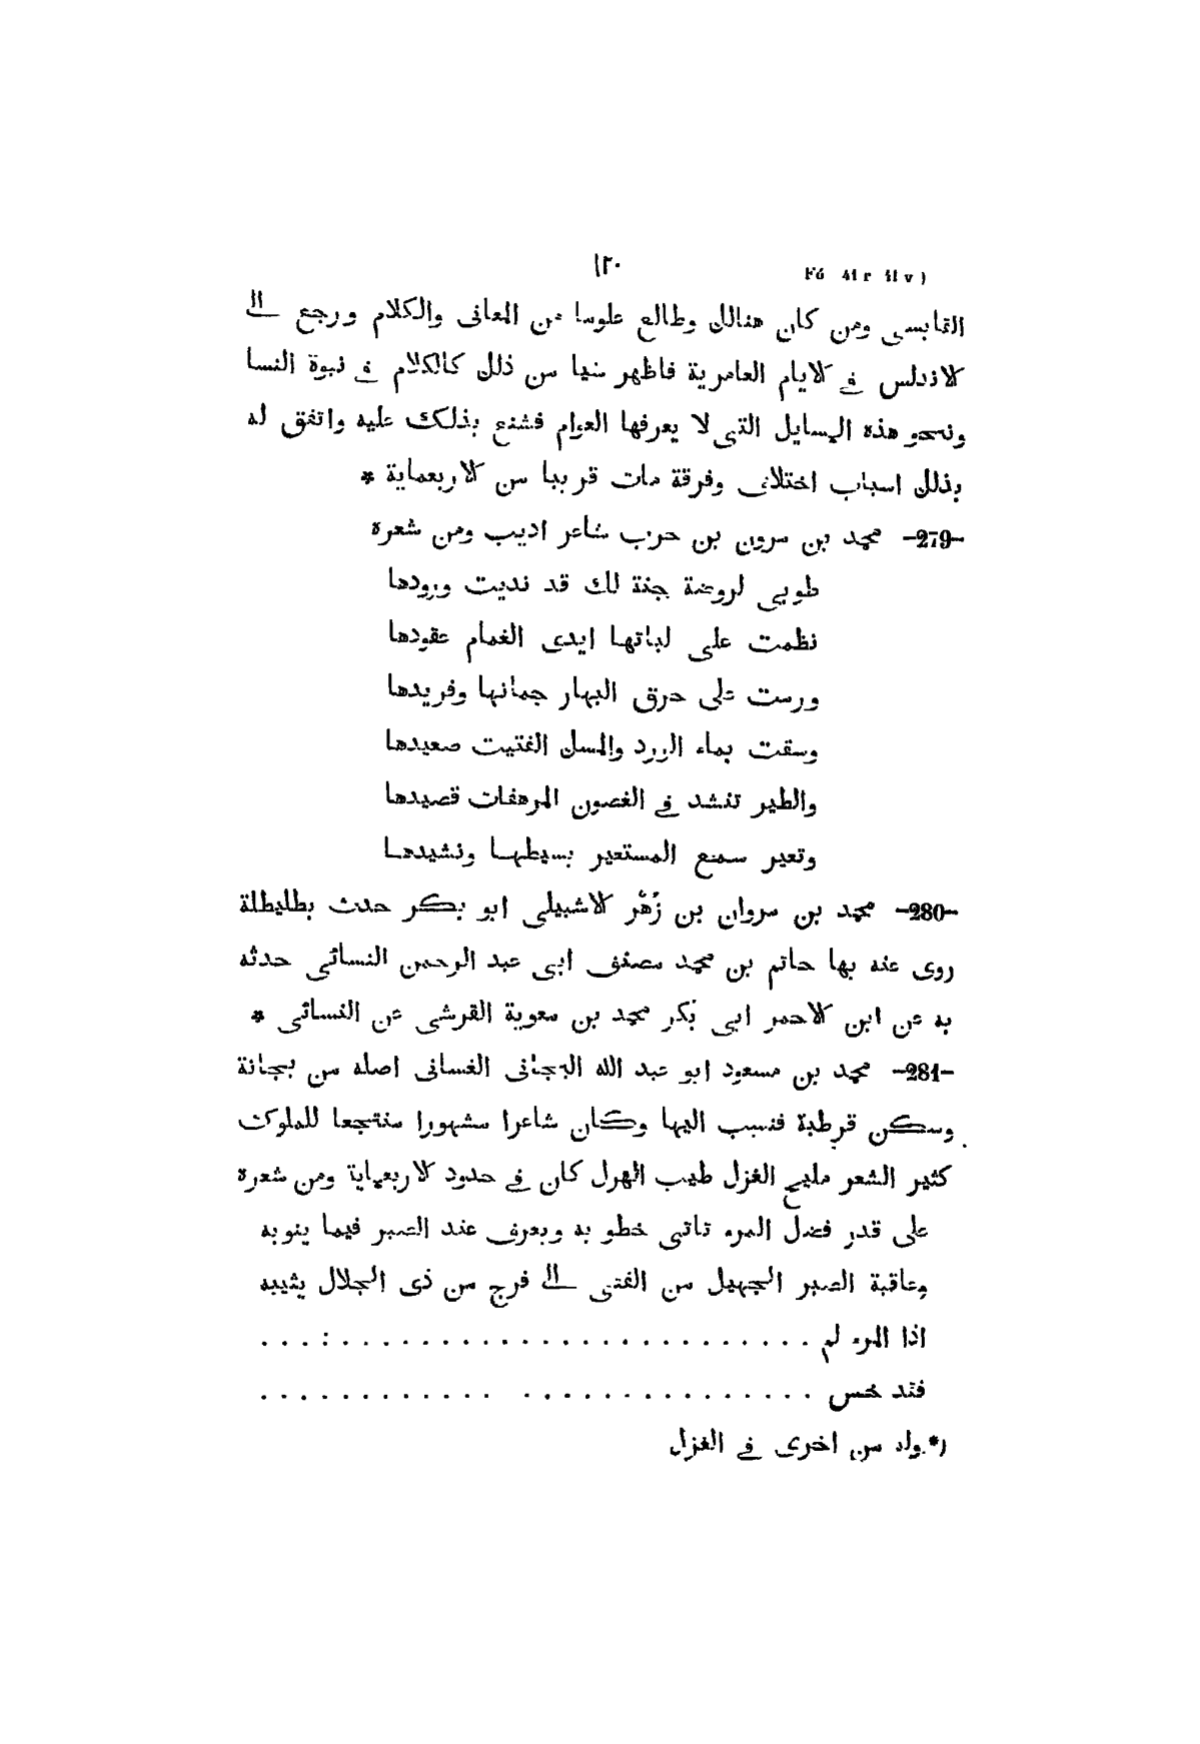 ١٢٠ Fó 41 r 41 v)
القابسى ومن كان هنالك وطالع علوما من المعانى والكلام ورجع الى
الاندلس فى الايام العامرية فاظهر شيا من ذلك كالكلام فى نبوة النسا
ونحو هذه المسايل التى لا يعرفها العوام فشنع بذلك عليه واتفق له
بذلك اسباب اختلاف وفرقة مات قريبا من الاربعماية *
-279- محمد بن مرون بن حرب شاعر اديب ومن شعره
طوبى لروضة جنة لك قد نديت ورودها
نظمت على لباتها ايدى الغمام عقودها
ورست على حرق البهار جمانها وفريدها
وسقت بماء الورد والمسك الفتيت صعيدها
والطير تنشد فى الغصون المرهفات قصيدها
وتعير سمع المستعير بسيطها ونشيدها
-280- محمد بن مروان بن زُهْر الاشبيلى ابو بكر حدث بطليطلة
روى عنه بها حاتم بن محمد مصنف ابى عبد الرحمن النسائى حدثه
به عن ابن الاحمر ابى بكر محمد بن معوية القرشى عن النسائى *
-281- محمد بن مسعود ابو عبد الله البجانى الغسانى اصله من بجانة
وسكن قرطبة فنسب اليها وكان شاعرا مشهورا منتجعا للملوك
كثير الشعر مليح الغزل طيب الهزل كان فى حدود الاربعماية ومن شعره
على قدر فضل المرء تاتى خطوبه ويعرف عند الصبر فيما ينوبه
وعاقبة الصبر الجميل من الفتى الى فرج من ذى الجلال يثيبه
اذا المرء لم . . . . . . . . . . . . . . . . . . . . . . . . : . . .
فقد خس . . . . . . . . . . . . . . . . . . . . . . . . . .
*وله من اخرى فى الغزل